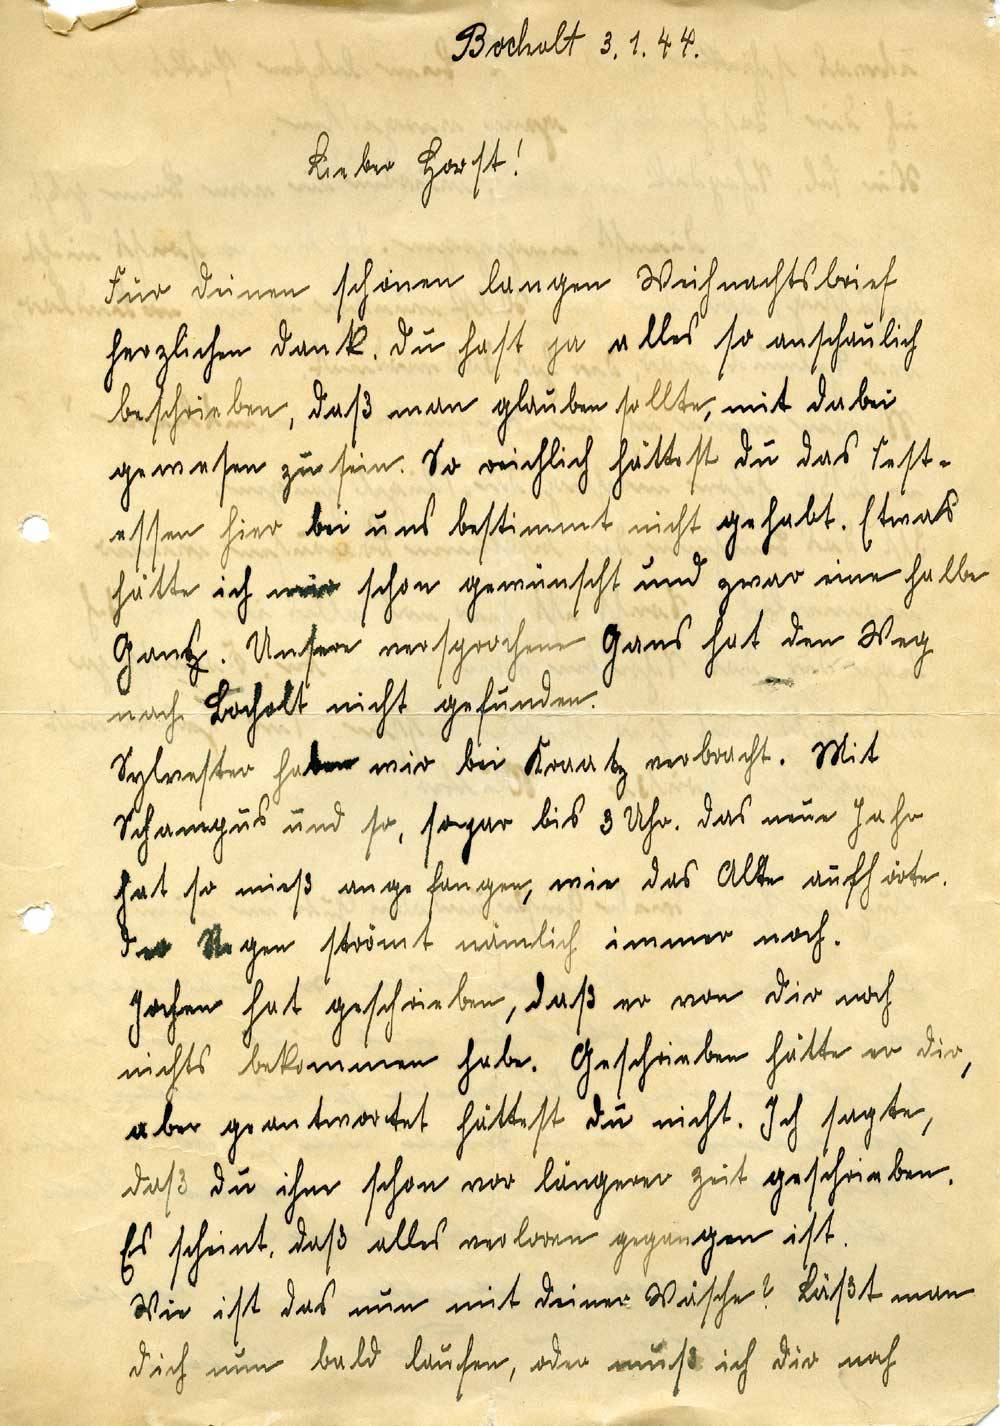 Bocholt 3.1.44.
Lieber Horst!
Für deinen schönen langen Weihnachtsbrief
herzlichen Dank. Du hast ja alles so anschaulich
beschrieben, daß man glauben sollte, mit dabei
gewesen zu sein. So reichlich hättest du das Fest-
essen hier bei uns bestimmt nicht gehabt. Etwas
hätte ich mir schon gewünscht und zwar eine halbe
Gans. Unsere versprochene Gans hat den Weg
nach Bocholt nicht gefunden.
Sylvester haben wir bei Kraatz verbracht. Mit
Schampus und so, sogar bis 3 Uhr. Das neue Jahr
hat so mieß angefangen, wie das Alte aufhörte.
Der Regen strömt nämlich immer noch.
Jochen hat geschrieben, daß er von dir noch
nichts bekommen habe. Geschrieben hätte er dir,
aber geantwortet hättest du nicht. Ich sagte,
daß du ihm schon vor längerer Zeit geschrieben.
Es scheint, daß alles verloren gegangen ist.
Wie ist das nun mit deiner Wäsche? Läßt man
dich nun bald laufen, oder muß ich dir noch